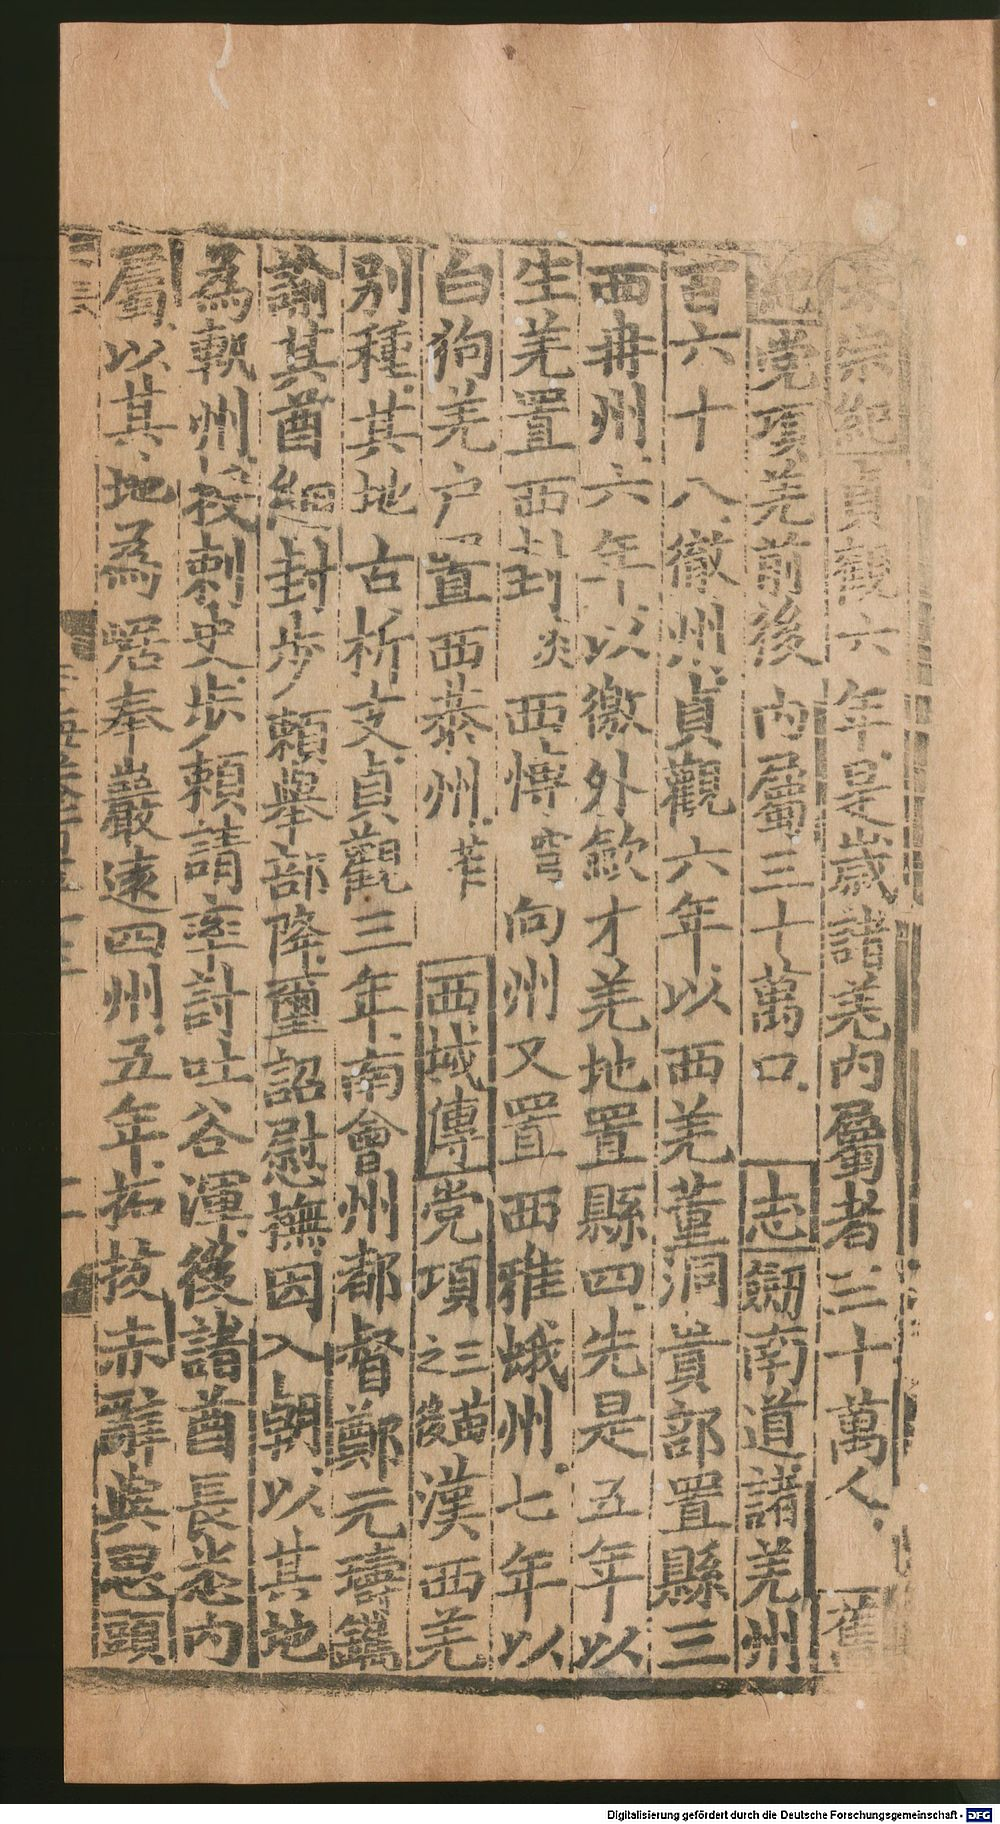 太宗紀貞觀六年是歲諸羌內屬者三十萬人舊
紀党項羌前後內屬三十萬口志劒南道諸羌州
百六十八徹州貞觀六年以西羌董洞貴部置縣三
西冉州六年以徼外歛才羌地置縣四先是五年以
生羌置西封炎西博穹向州又置西雅蛾州七年以
白狗羌户置西恭州笮西域傳党項三苗之後漢西羌
別種其地古析支貞觀三年南會州都督鄭元璹
諭其酋細封步頼舉部降璽詔慰撫因入朝以其地
為軌州授刺史步頼請率討吐谷渾後諸酋長悉內
屬以其地為㟍奉巖遠四州五年拓拔赤辭與思頭
Digitalisierung gefördert durch die Deutsche Forschungsgemeinschaft - DFG